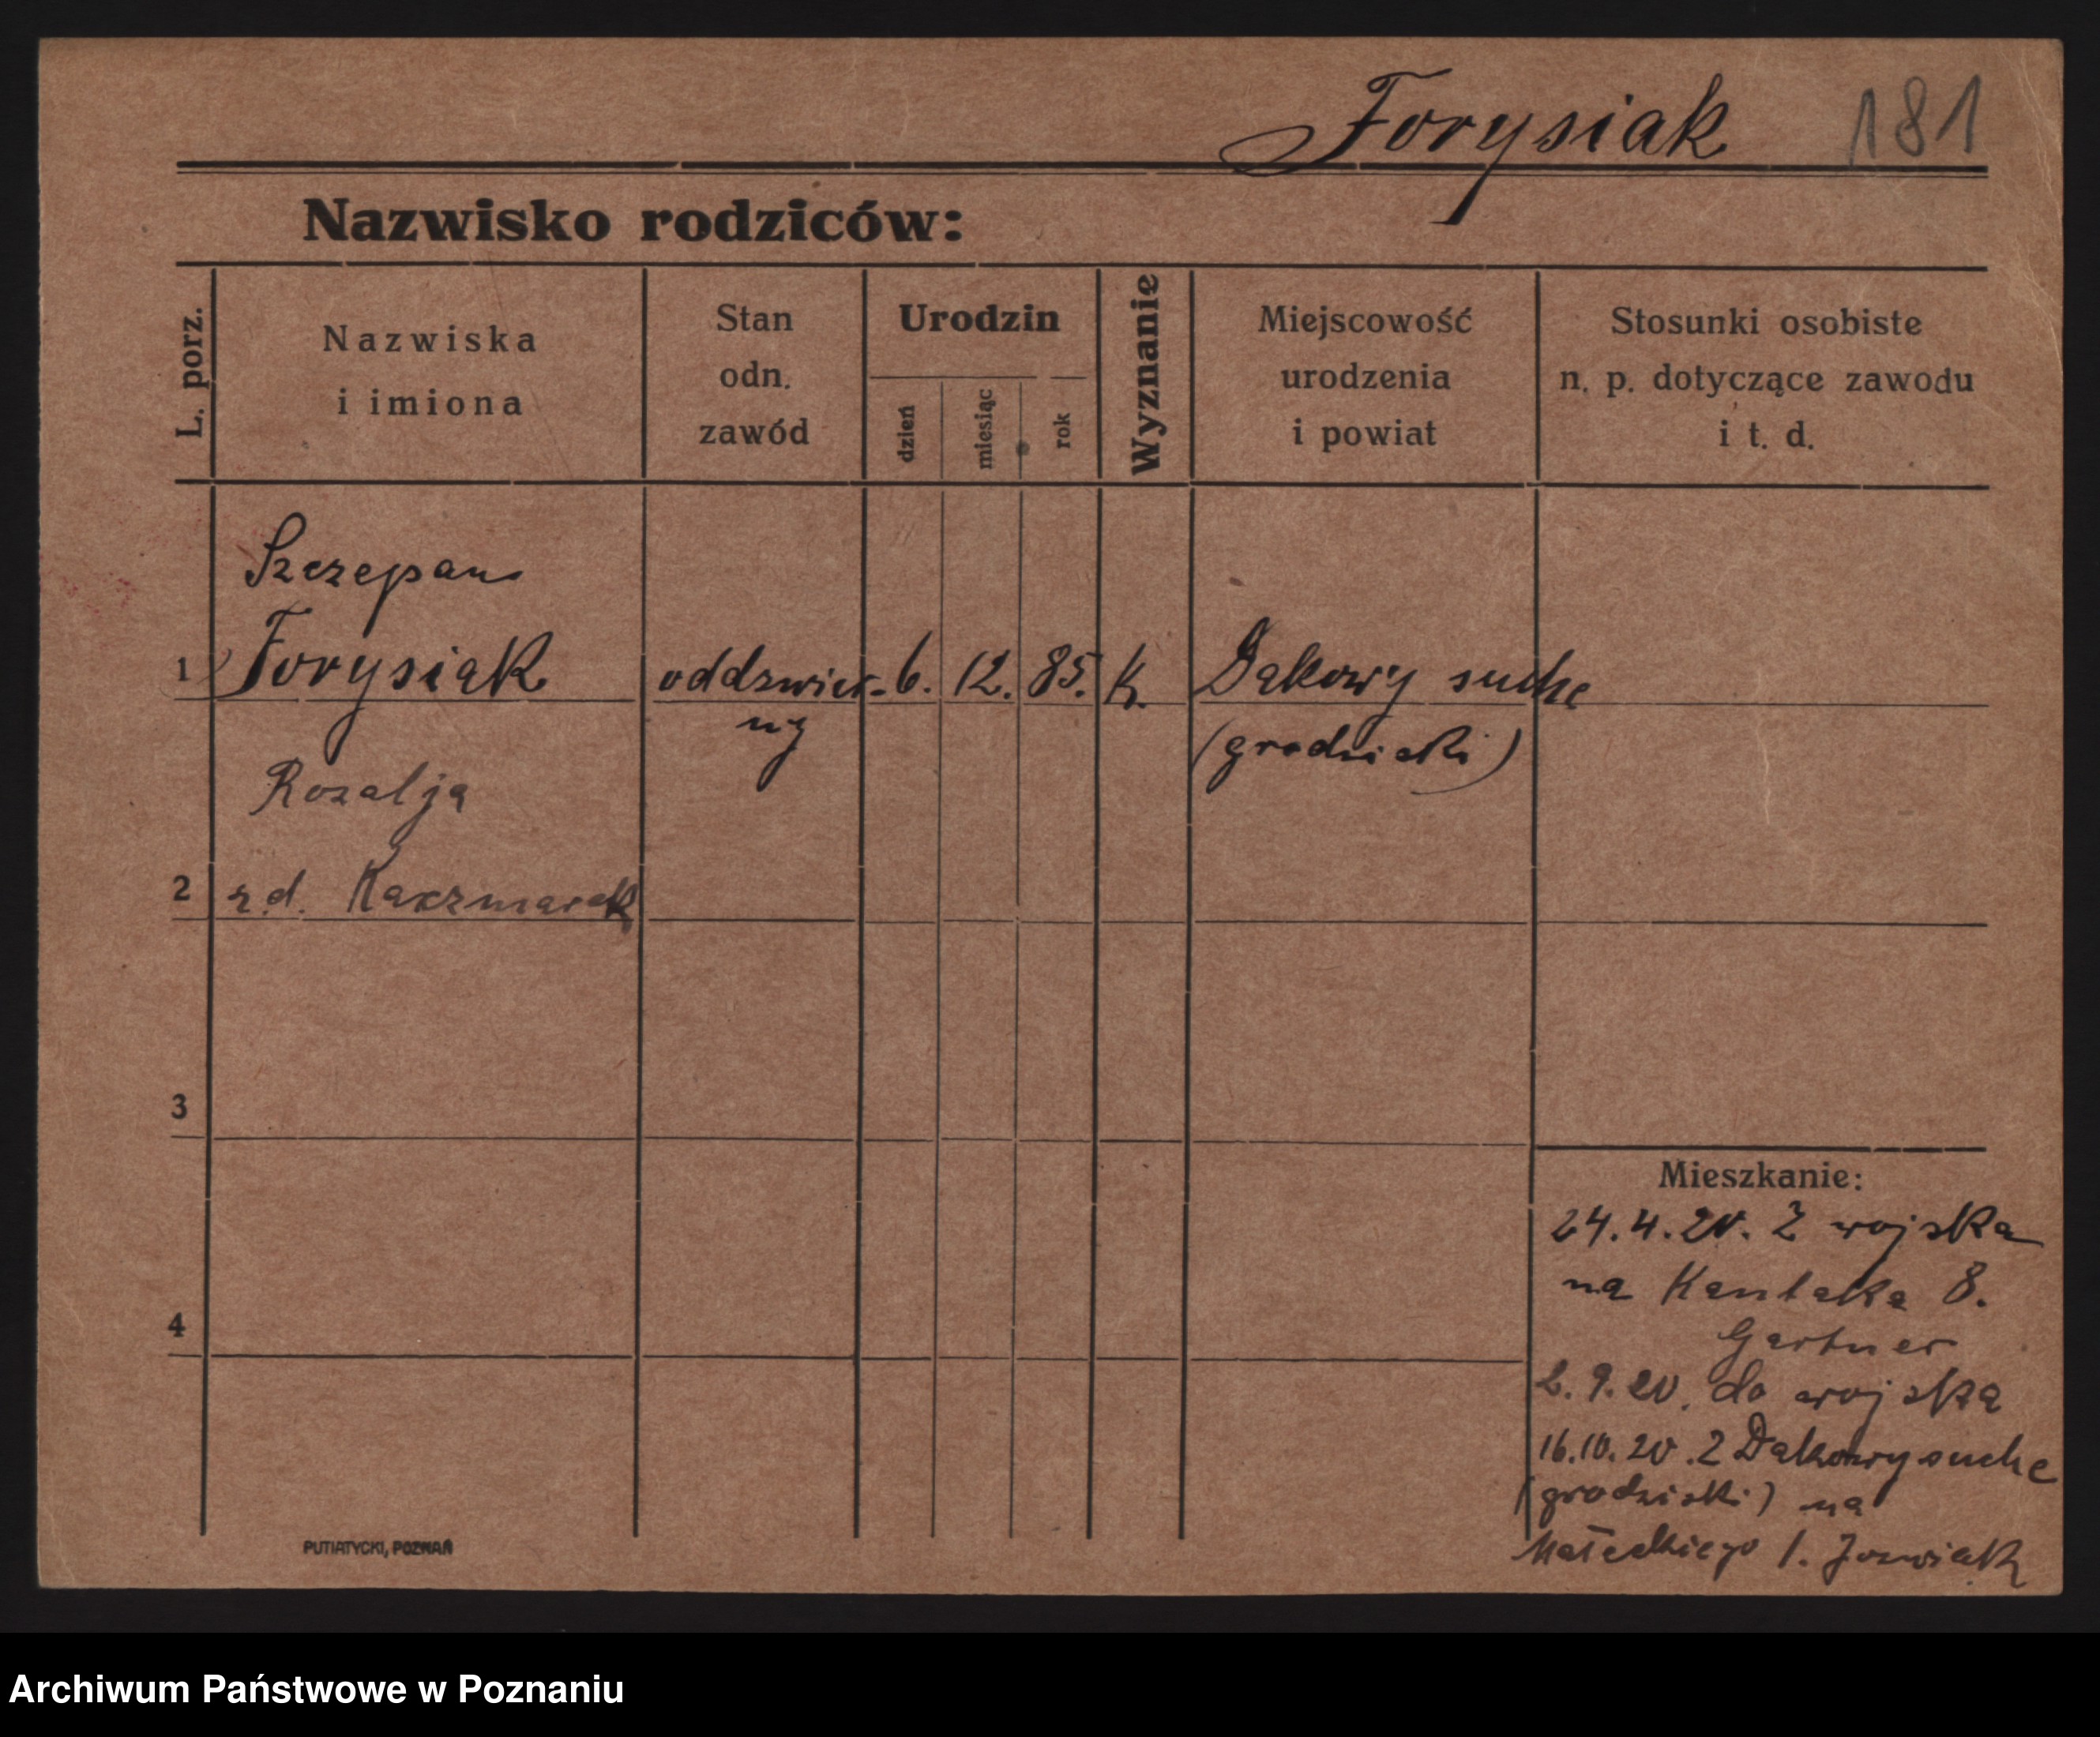 Forysiak 181
Nazwisko rodziców:
L. porz.
Nazwiska
i imiona
Stan
odn.
zawód
Urodzin
dzień
miesiąc
rok
Wyznanie
Miejscowość
urodzenia
i powiat
Stosunki osobiste
n. p. dotyczące zawodu
i t. d.
Szczepan
1 Forysiak oddzwier- 6. 12. 85. k. Dakowy suche
ny (grodziski)
Rozalja
2 z.d. Kaczmarek
3
4
Mieszkanie:
24.4.20. Z wojska
na Kantaka 8.
Gartner
2.9.20. do wojska
16.10.20. Z Dakowy suche
(grodziski) na
Małeckiego 1. Jozwiak
PUTIATYCKI, POZNAŃ
Archiwum Państwowe w Poznaniu